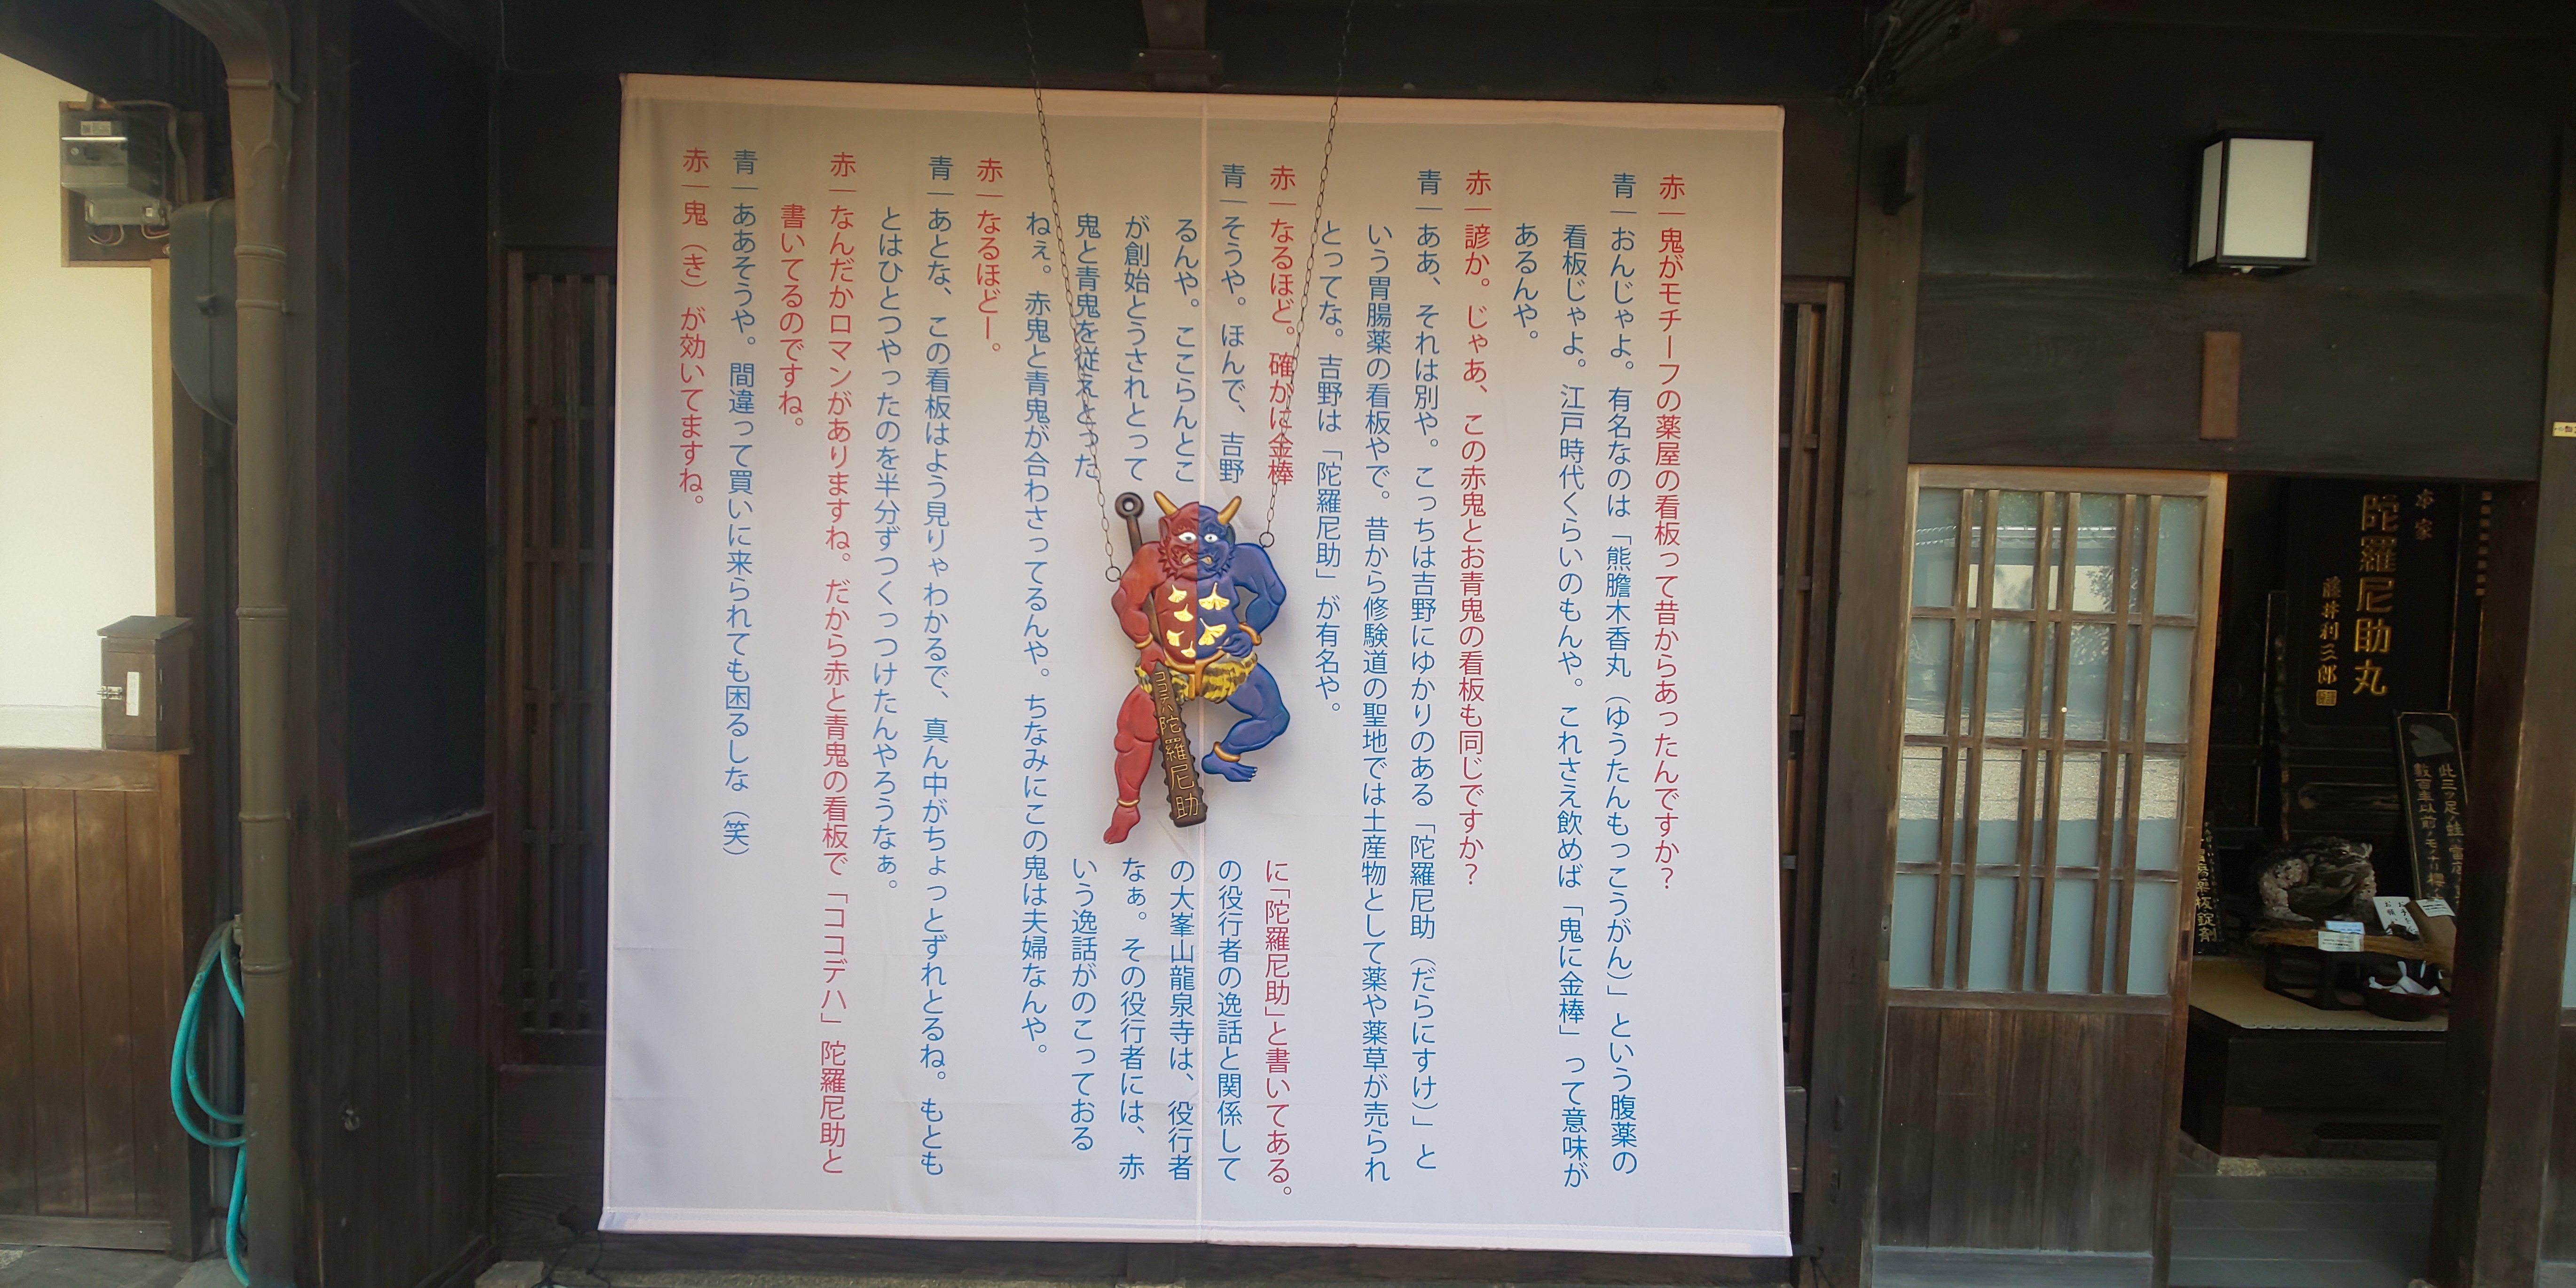 赤｜鬼がモチーフの薬屋の看板って昔からあったんですか？
青｜おんじゃよ。有名なのは「熊膽木香丸（ゆうたんもっこうがん）」という腹薬の
看板じゃよ。江戸時代くらいのもんや。これさえ飲めば「鬼に金棒」って意味が
あるんや。
赤｜諺か。じゃあ、この赤鬼とお青鬼の看板も同じですか？
青｜ああ、それは別や。こっちは吉野にゆかりのある「陀羅尼助（だらにすけ）」と
いう胃腸薬の看板やで。昔から修験道の聖地では土産物として薬や薬草が売られ
とってな。吉野は「陀羅尼助」が有名や。
赤｜なるほど。確かに金棒に「陀羅尼助」と書いてある。
青｜そうや。ほんで、吉野の役行者の逸話と関係して
るんや。ここらんとこの大峯山龍泉寺は、役行者
が創始とうされとってなぁ。その役行者には、赤
鬼と青鬼を従えとったいう逸話がのこっておる
ねぇ。赤鬼と青鬼が合わさってるんや。ちなみにこの鬼は夫婦なんや。
赤｜なるほどー。
青｜あとな、この看板はよう見りゃわかるで、真ん中がちょっとずれとるね。もとも
とはひとつやったのを半分ずつくっつけたんやろうなぁ。
赤｜なんだかロマンがありますね。だから赤と青鬼の看板で「ココデハ」陀羅尼助と
書いてるのですね。
青｜ああそうや。間違って買いに来られても困るしな（笑）
赤｜鬼（き）が効いてますね。
ココデハ陀羅尼助
本家
陀羅尼助丸
藤井利三郎